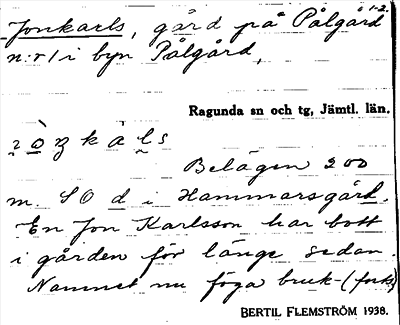 Jonkarls, gård på Pålgård 1-2.
n:r 1 i byn Pålgård,
Ragunda sn och tg, Jämtl. län.
Belägen 200
m. SO d i Hammarsgård.
En Jon Karlsson har bott
i gården för länge sedan.
Namnet nu föga bruk- (forts)
BERTIL FLEMSTRÖM 1938.